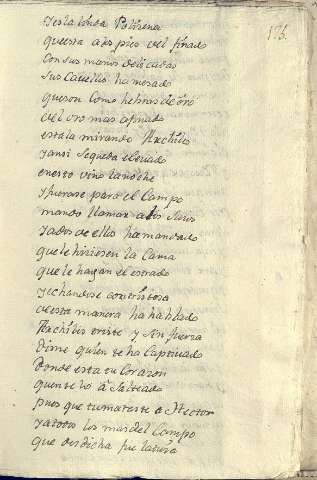 175.
y esta linda Polixena
questa a los pies del finado
con sus manos delicadas
sus cavellos ha mesado
queson como hebras de oro
del oro mas afinado
estala mirando Archiles
y ansi se queda elevado
en esto vino la noche
y fuerase para el Campo
mando llamar a los suios
y a dos de ellos ha mandado
que le hiciesen la Cama
que le hagan el estrado
y echandose con tristeza
de esta manera ha hablado
Archiles triste y sin fuerza
dime quien te ha captivado
donde esta tu Corazon
quien te lo á salteado
pues que tu mataste a Hector
y a todos los mas del Campo
que desdicha fue la tuia